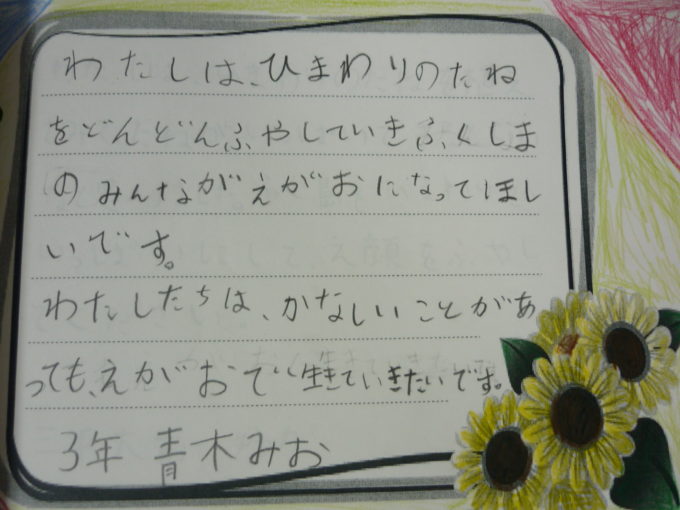 わたしは、ひまわりのたね
をどんどんふやしていきふくしま
のみんながえがおになってほし
いです。
わたしたちは、かなしいことがあ
っても、えがおで生きていきたいです。
3年 青木みお